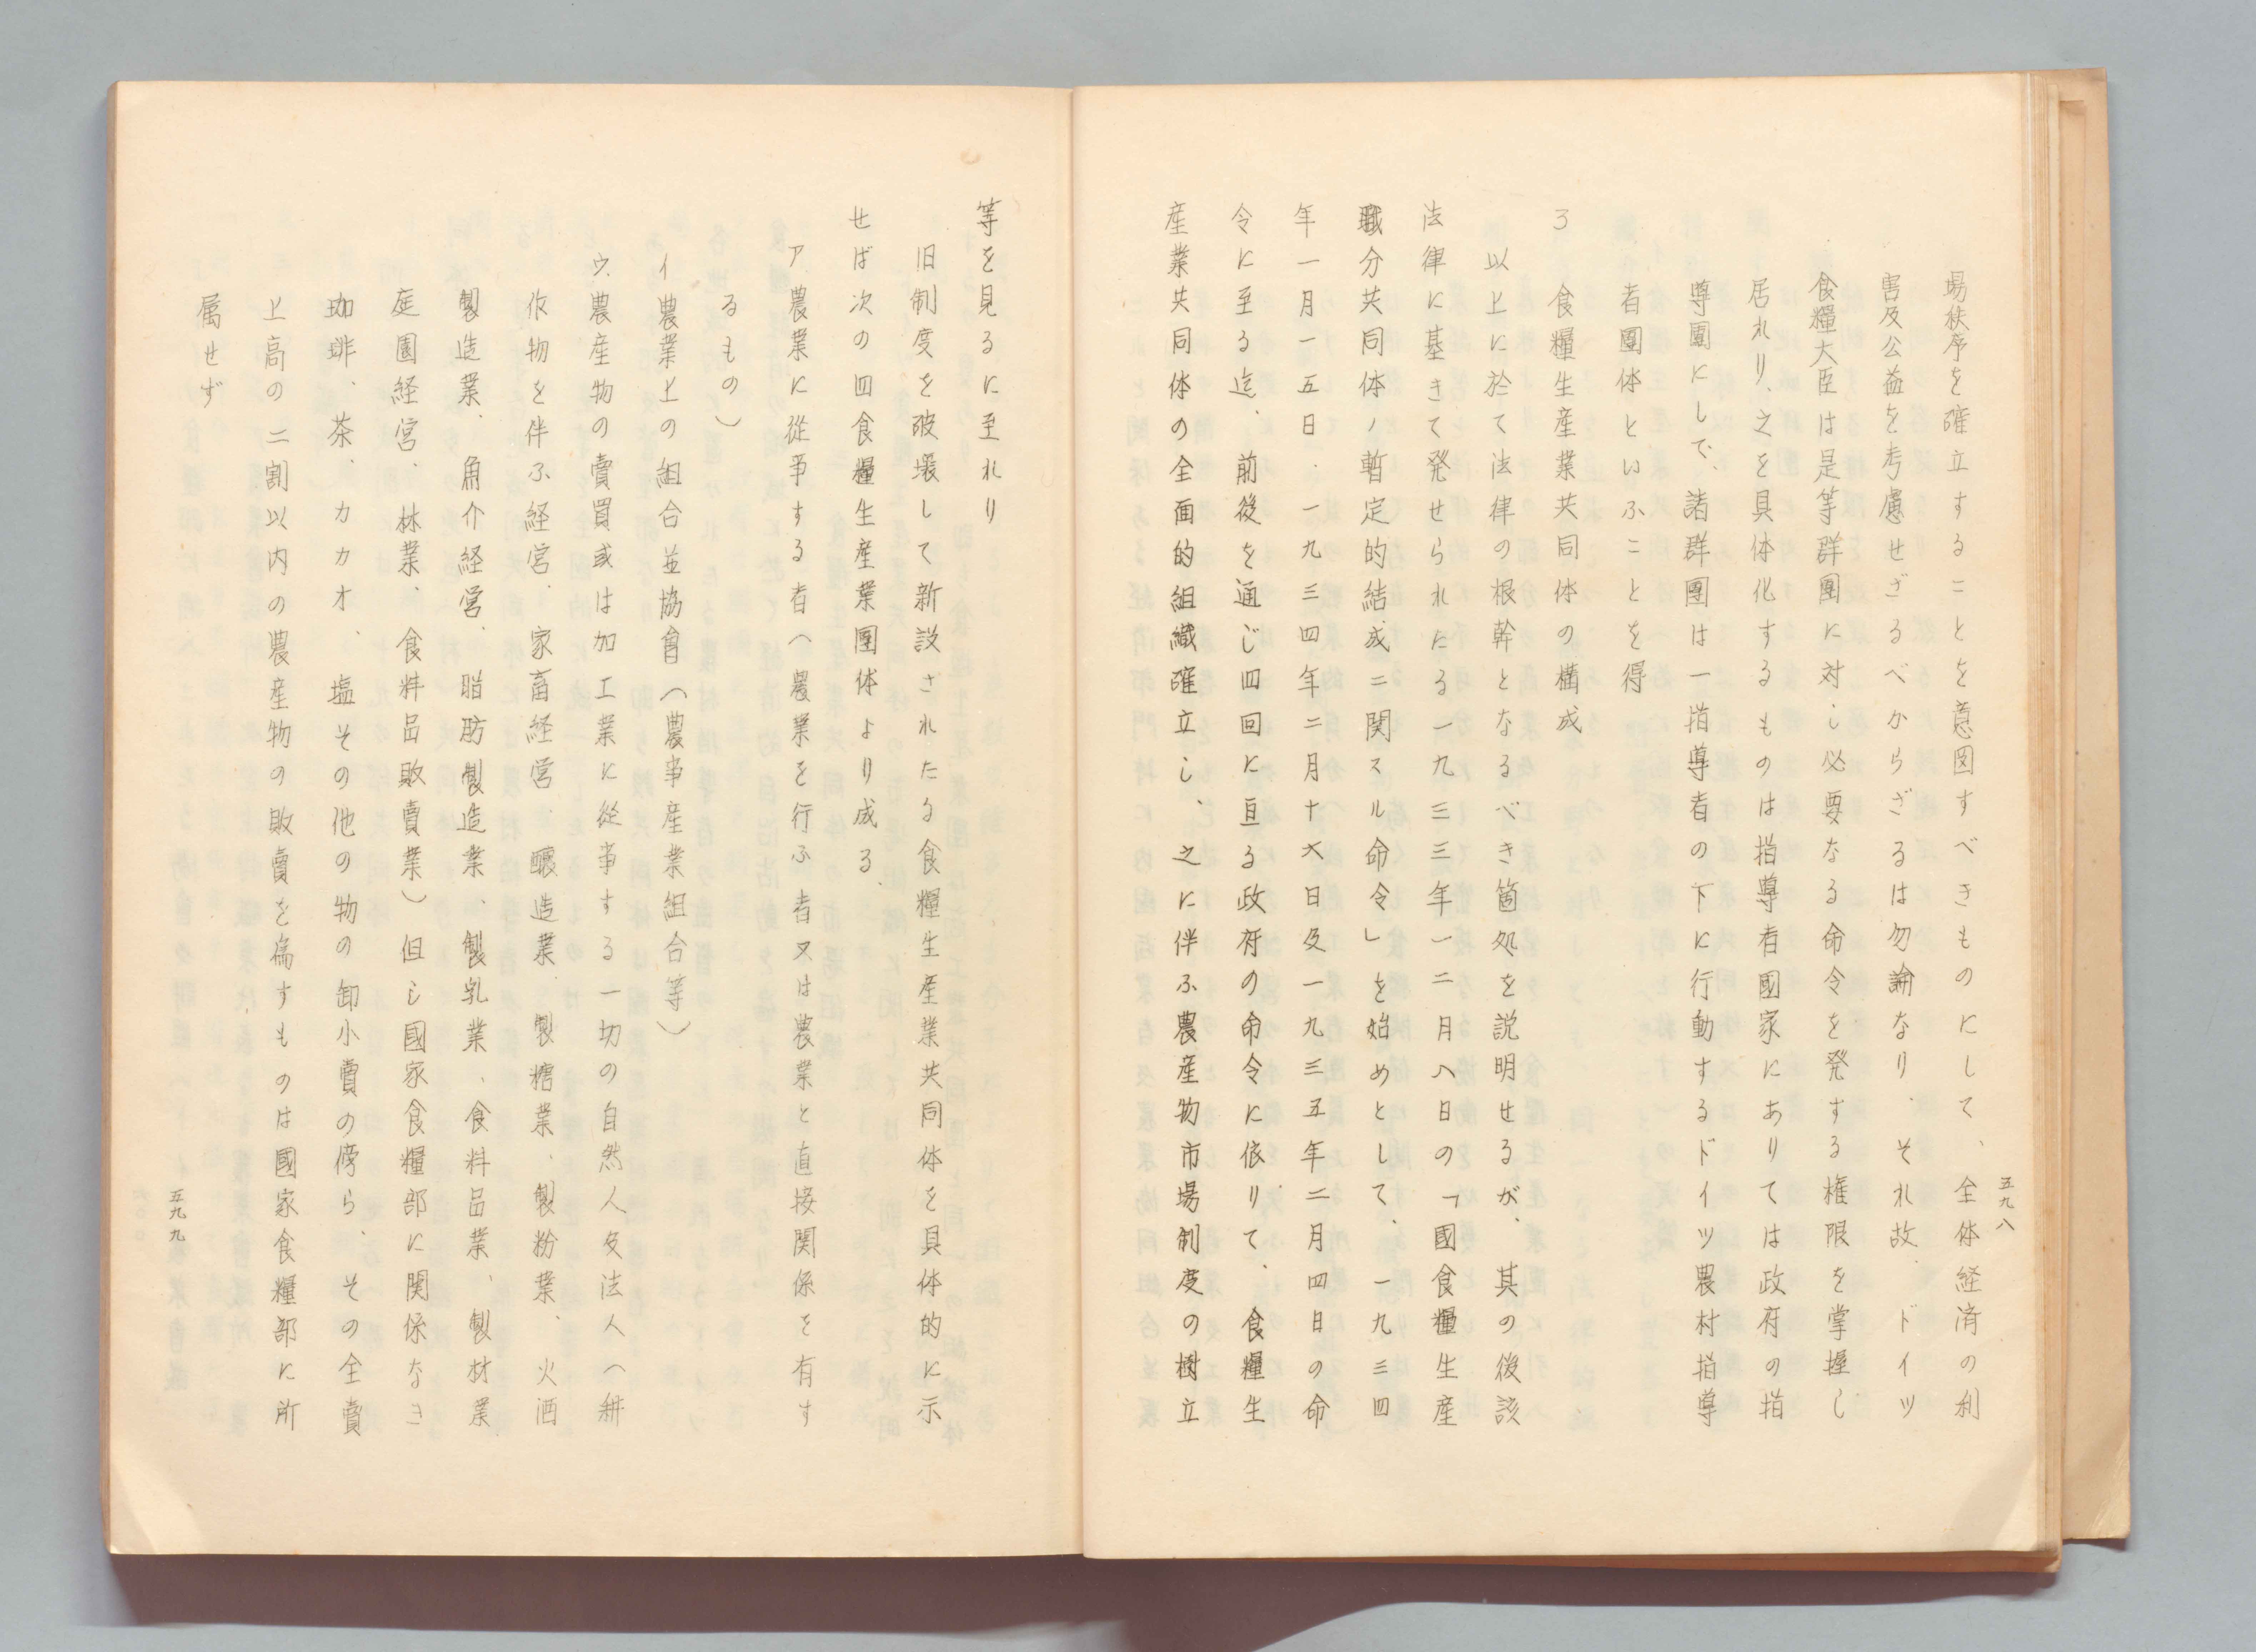 五九八
場秩序を確立することを意図すべきものにして、全体経済の利
害及公益を考慮せざるべからざるは勿論なり、それ故、ドイツ
食糧大臣は是等群團に対し必要なる命令を発する権限を掌握し
居れり、之を具体化するものは指導者國家にありては政府の指
導團にして、諸群團は一指導者の下に行動するドイツ農村指導
者團体といふことを得
3 食糧生産業共同体の構成
以上に於て法律の根幹となるべき箇処を説明せるが、其の後該
法律に基きて発せられたる一九三三年一二月八日の「國食糧生産
職分共同体ノ暫定的結成ニ関スル命令」を始めとして、一九三四
年一月一五日、一九三四年二月十六日及一九三五年二月四日の命
令に至る迄、前後を通じ四回に亘る政府の命令に依りて、食糧生
産業共同体の全面的組織確立し、之に伴ふ農産物市場制度の樹立
等を見るに至れり
旧制度を破壊して新設されたる食糧生産業共同体を具体的に示
せば次の四食糧生産業團体より成る、
ア 農業に從亊する者(農業を行ふ者又は農業と直接関係を有す
るもの)
イ 農業上の組合並協會(農亊産業組合等)
ウ 農産物の賣買或は加工業に從亊する一切の自然人及法人(耕
作物を伴ふ経営、家畜経営、醸造業、製糖業、製粉業、火酒
製造業、魚介経営、脂肪製造業、製乳業、食料品業、製材業
庭園経営、林業、食料品敗賣業)但し國家食糧部に関係なき
珈琲、茶、カカオ、塩その他の物の卸小賣の傍ら、その全賣
上高の二割以内の農産物の敗賣を為すものは國家食糧部に所
属せず
五九九